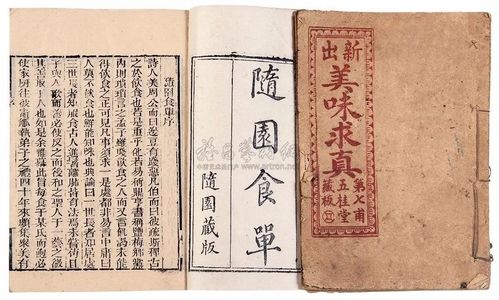 新出
美味求真
第七甫
五桂堂
藏板
隨園食單
隨園藏版
隨園食單序
詩人美周公而曰籩豆有踐惡凡伯而曰彼疏斯稗古
之於飲食也若是重乎他若易稱鼎亨書稱鹽梅鄉黨
內則瑣瑣言之孟子雖賤飲食之人而又言飢渴未能
得飲食之正可見凡事須求一是處都非易言中庸曰
人莫不飲食也鮮能知味也典論曰一世長者知居處
三世長者知服食古人進鬐離肺皆有法焉未嘗苟且
子與人歌而善必使反之而後和之聖人于一藝之微
其善取于人也如是余雅慕此旨每食于某氏而飽必
使家廚往彼灶觚執弟子之禮四十年來頗集衆美有